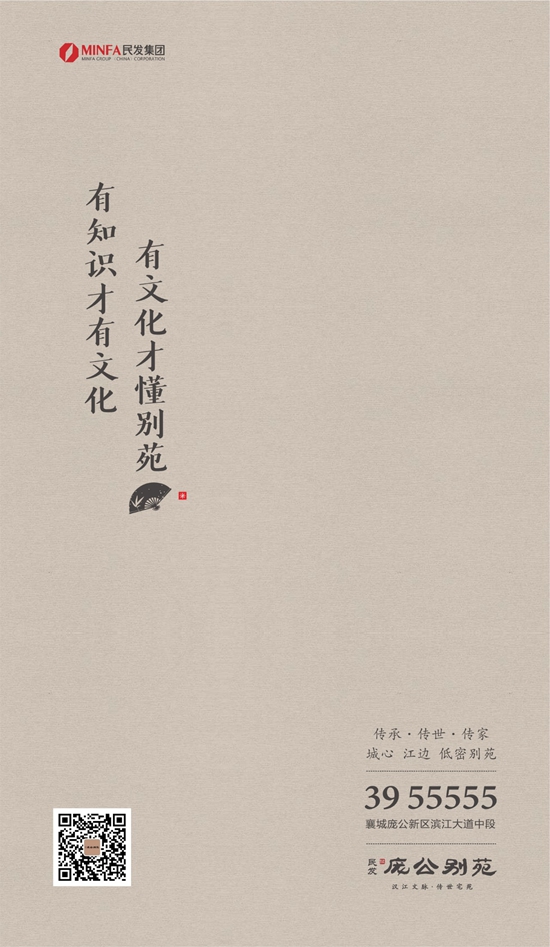 MINFA民发集团
MINFA GROUP (CHINA) CORPORATION
有知识才有文化
有文化才懂别苑
传承·传世·传家
城心 江边 低密别苑
39 55555
襄城庞公新区滨江大道中段
民发 庞公别苑
汉江文脉·传世宅苑